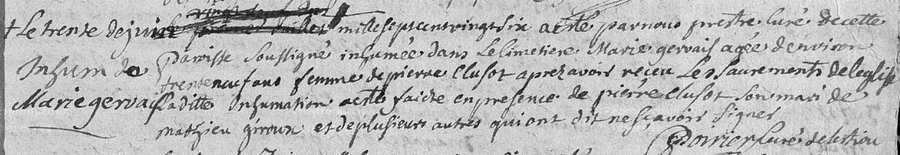 + Le trente de juin mille sept cent vingt six a esté par nous prestre curé de cette
Inhum de
Marie gervais
Parroisse soussigné inhumée dans Le Cimetiere Marie gervais agée denviron
trente neuf ans femme de pierre Clusot apres avoir reçeu Les Sacrements de leglise
Laditte Inhumation a esté faitte en presence de pierre Clusot son mari de
mathieu giroux et de plusieurs autres qui ont dit ne sçavoir signer
Poirier curé